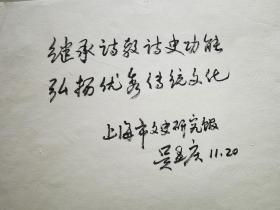 继承诗教诗史功能
弘扬优秀传统文化
上海市文史研究馆
吴孟庆 11.20